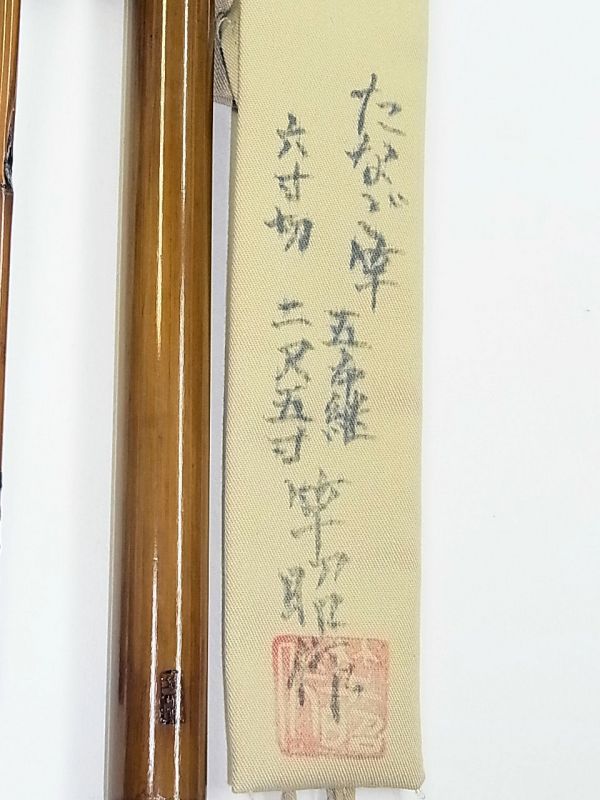 たなご竿
五本継
六寸切 二尺五寸
竿昭作